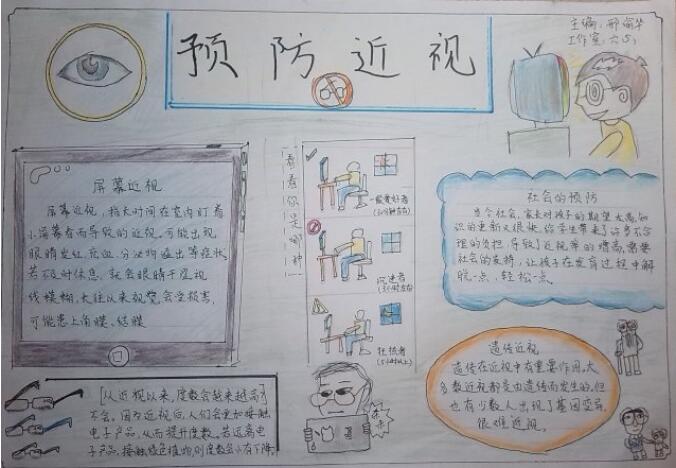 预防近视
主编：邢俞华
工作室：六(5)
屏幕近视
屏幕近视，指长时间在室内盯着
小荧幕看而导致的近视。可能出现
眼睛发红，充血，分泌物溢出等症状
若不及时休息，就会眼睛干涩视
线模糊，长往以来视觉会受损害，
可能患上角膜、结膜
看看你是哪种
一般爱好者
沉迷者
狂热者
社会的预防
当个社会，家长对孩子的期望太高，知
识的更新又很快，给学生带来了许多不合
理的负担，导致了近视率的增高，需要
社会的支持，让孩子在发育过程中解
脱一点，轻松一点。
遗传近视
遗传在近视中有重要作用。大
多数近视都是由遗传而发生的，但
也有少数人出现了基因变异，
很难近视。
[从近视以来，度数会越来越高?]
不会，因为近视后，人们会更加接触
电子产品，从而提升度数。若远离电
子产品，接触绿色植物，则度数会小有下降。